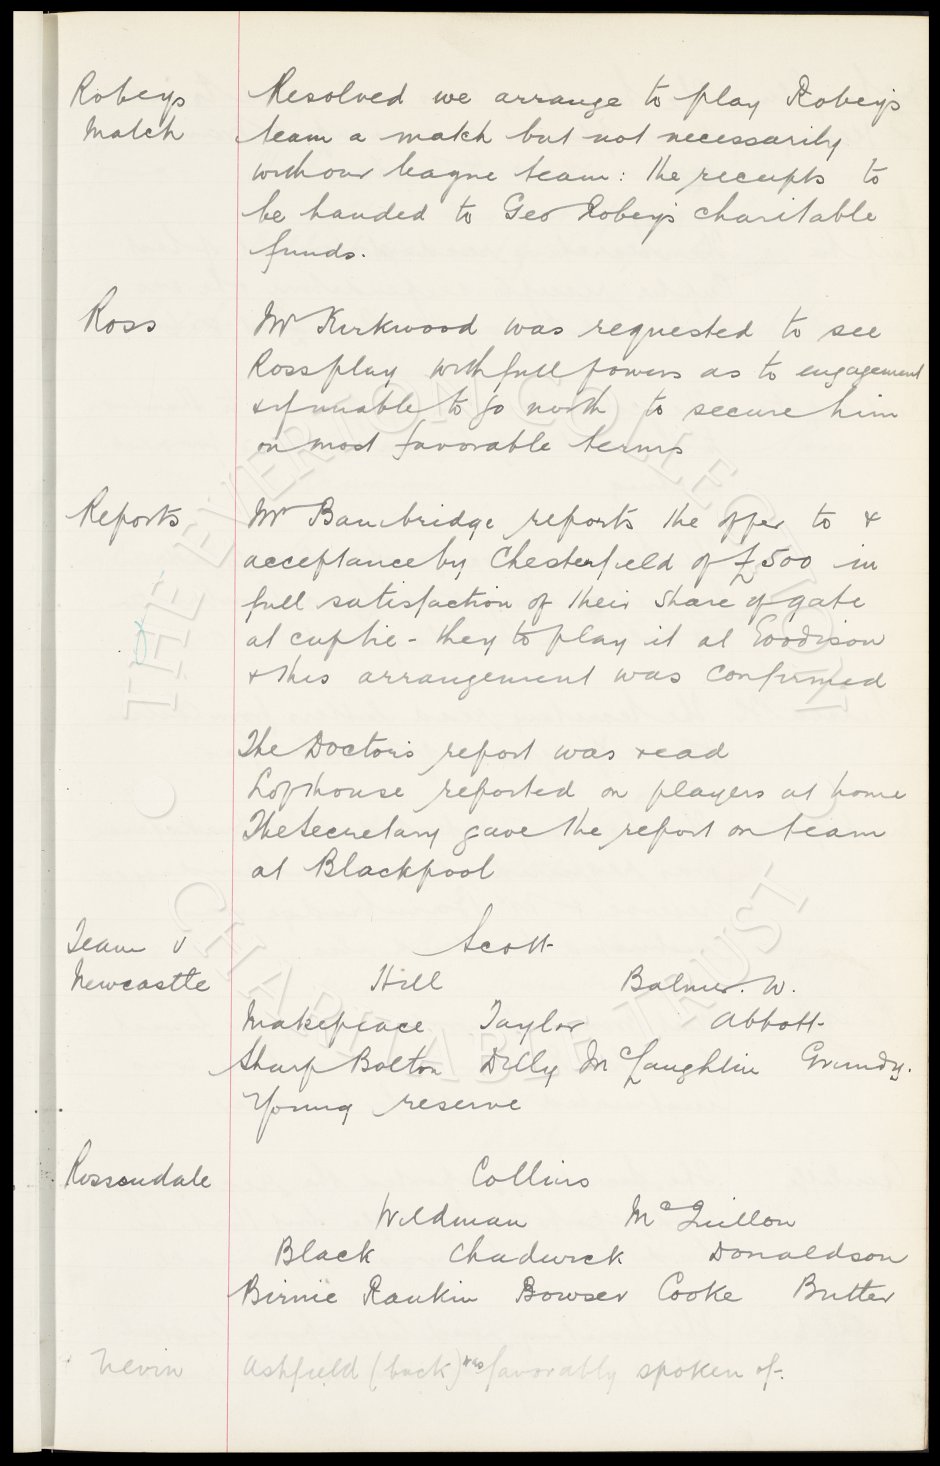 Robeys Resolved we arrange to play Robey's
Match team a match but not necessarily
with our league team: the receipts to
be handed to Geo Robey's charitable
funds.
Ross Mr Kirkwood was requested to see
Ross play with full powers as to engagement
& if unable to go north to secure him
on most favorable terms
Reports Mr Bainbridge reports the offer to &
acceptance by Chesterfield of £500 in
full satisfaction of their share of gate
at cuptie - they to play it at Goodison
& this arrangement was confirmed
The Doctor's report was read
Lofthouse reported on players at home
The Secretary gave the report on team
at Blackpool
Team v Scott
Newcastle Hill Balmer. W.
Makepeace Taylor Abbott
Sharp Bolton Dilly McLaughlin Grundy.
Young reserve
Rossendale Collins
Wildman McQuillon
Black Chadwick Donaldson
Birnie Rankin Bowser Cooke Butter
Nevin Ashfield (back) was favorably spoken of.
THE EVERTON COLLECTION
CHARITABLE TRUST